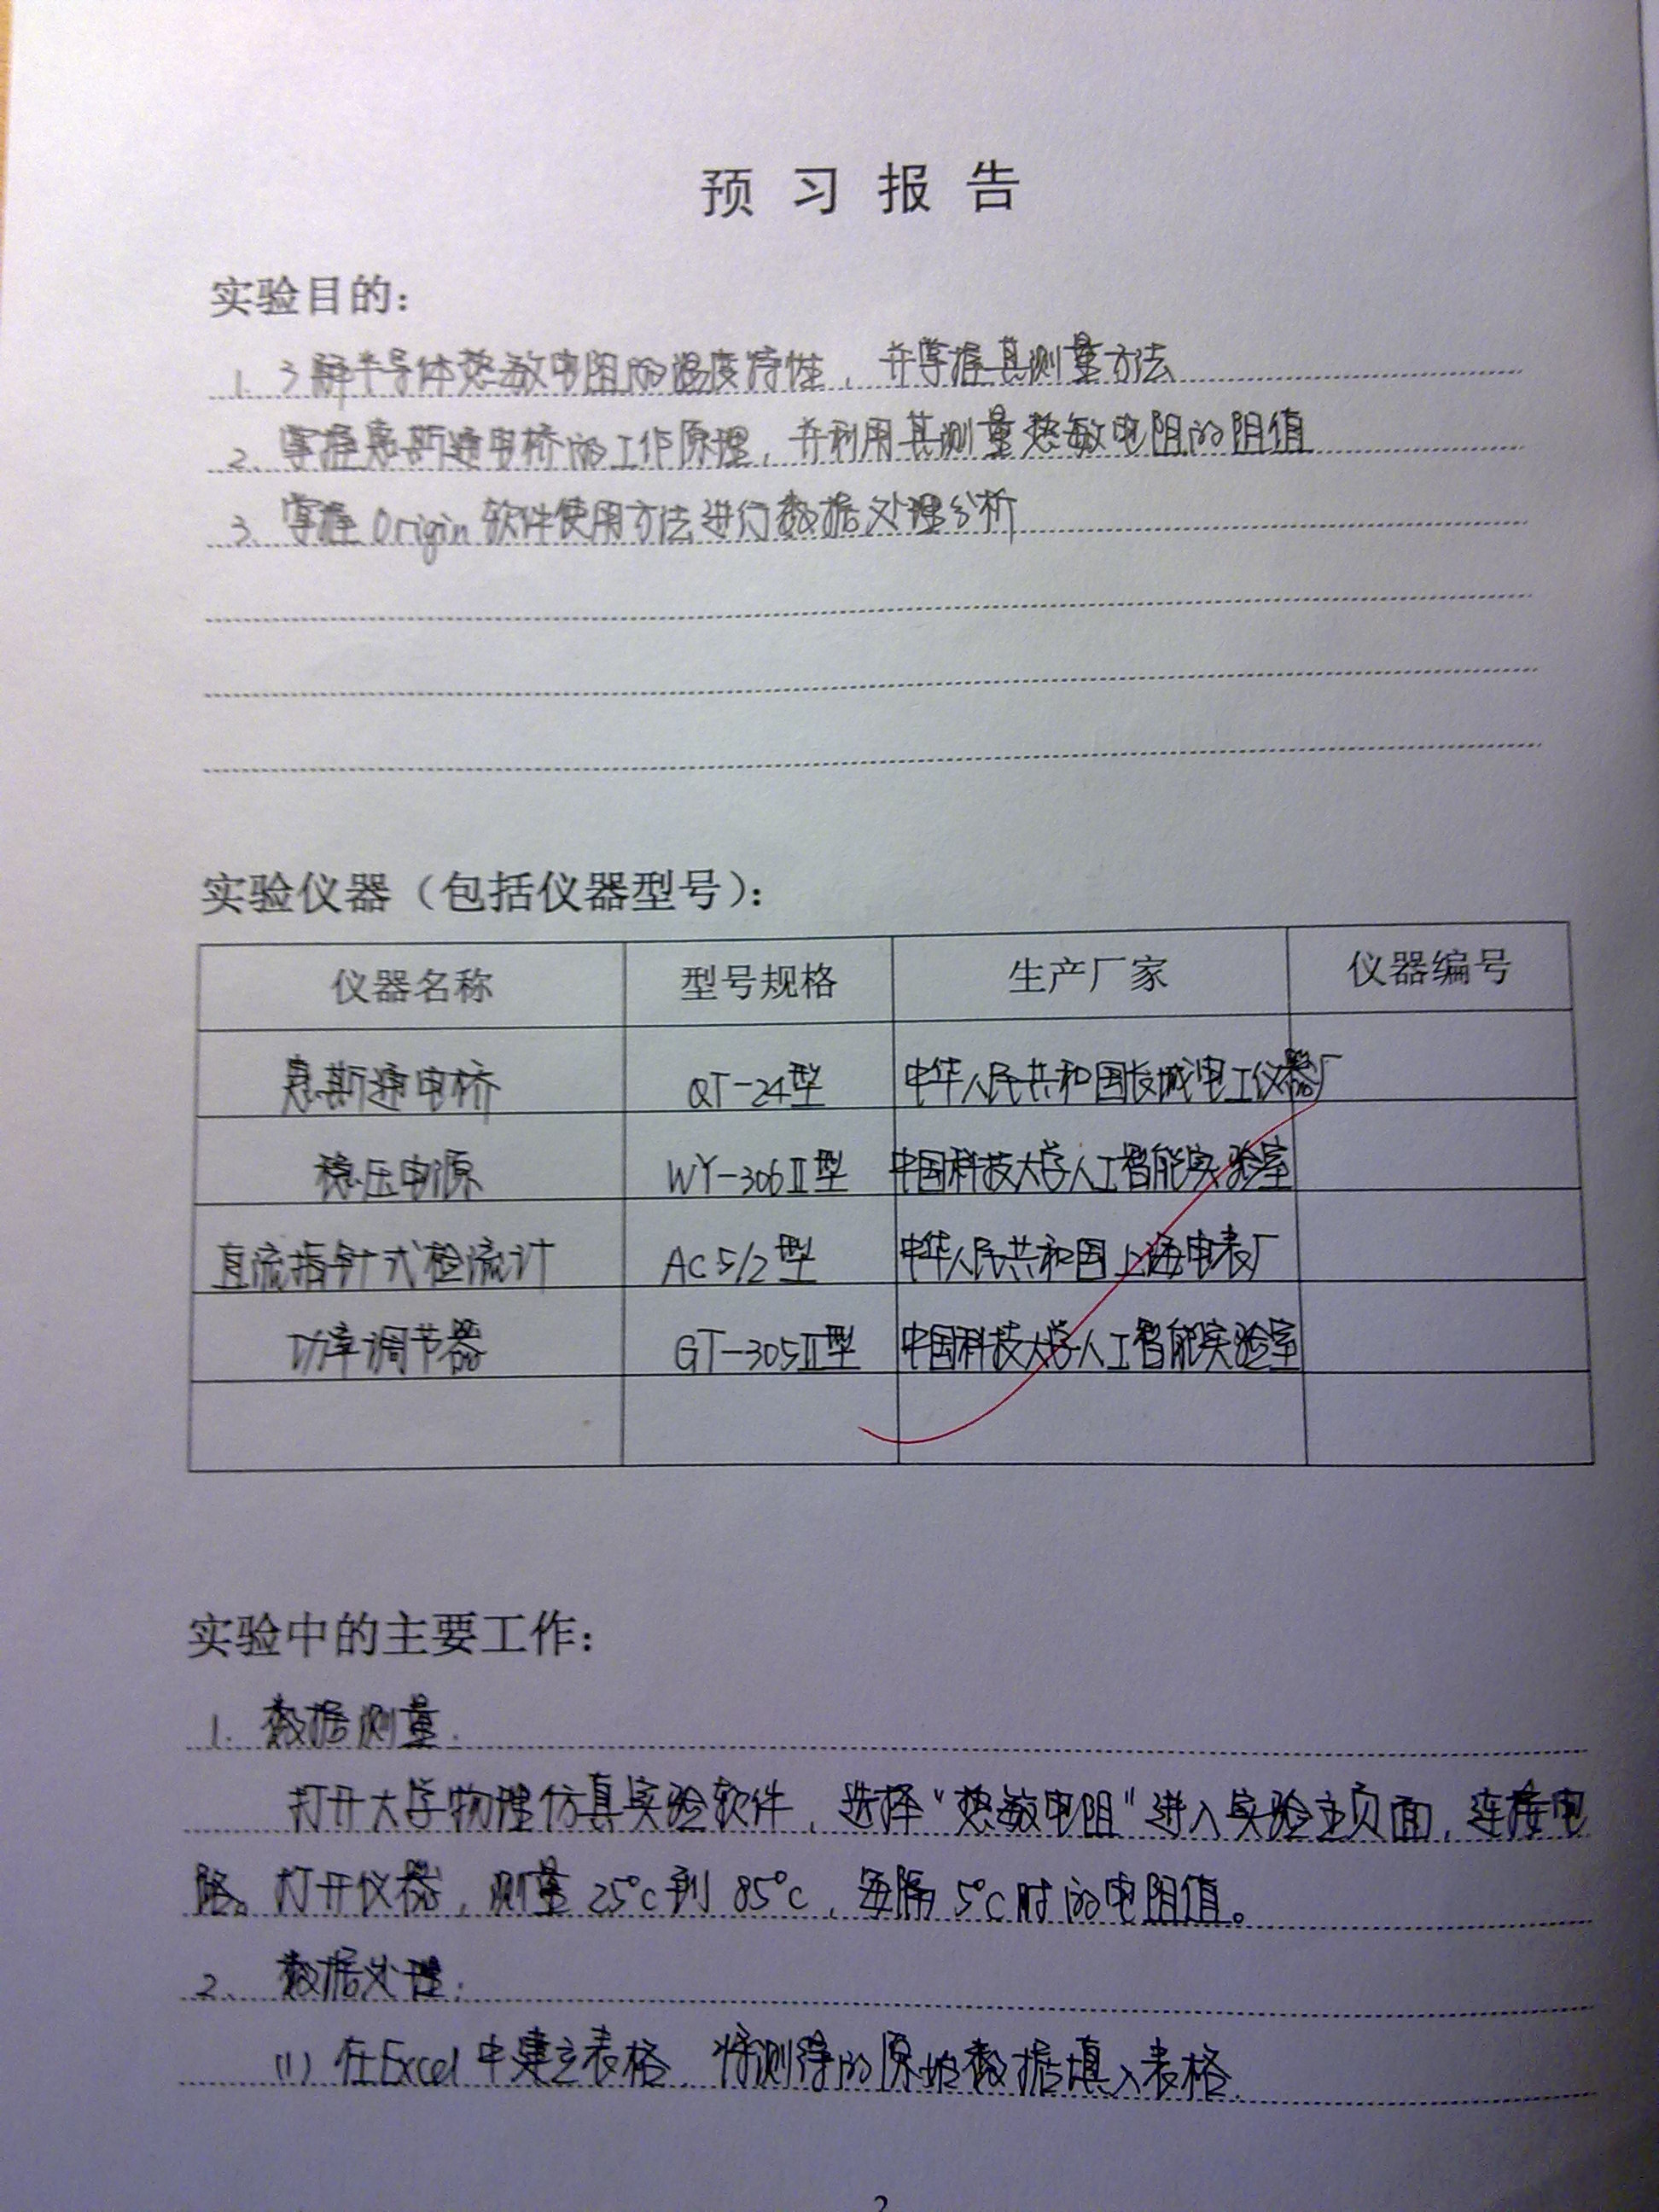 预习报告
实验目的：
1. 了解半导体热敏电阻的温度特性，并掌握其测量方法
2. 掌握惠斯通电桥的工作原理，并利用其测量热敏电阻的阻值
3. 掌握Origin软件使用方法进行数据处理分析
实验仪器（包括仪器型号）：
仪器名称 型号规格 生产厂家 仪器编号
惠斯通电桥 QT-24型 中华人民共和国长城电工仪器厂
稳压电源 WY-306Ⅱ型 中国科技大学人工智能实验室
直流指针式检流计 AC5/2型 中华人民共和国上海电表厂
功率调节器 GT-305Ⅱ型 中国科技大学人工智能实验室
实验中的主要工作：
1. 数据测量：
打开大学物理仿真实验软件，选择“热敏电阻”进入实验主页面，连接电
路。打开仪器，测量25℃到85℃，每隔5℃时的电阻值。
2. 数据处理：
(1) 在Excel中建立表格，将测得的原始数据填入表格.
2